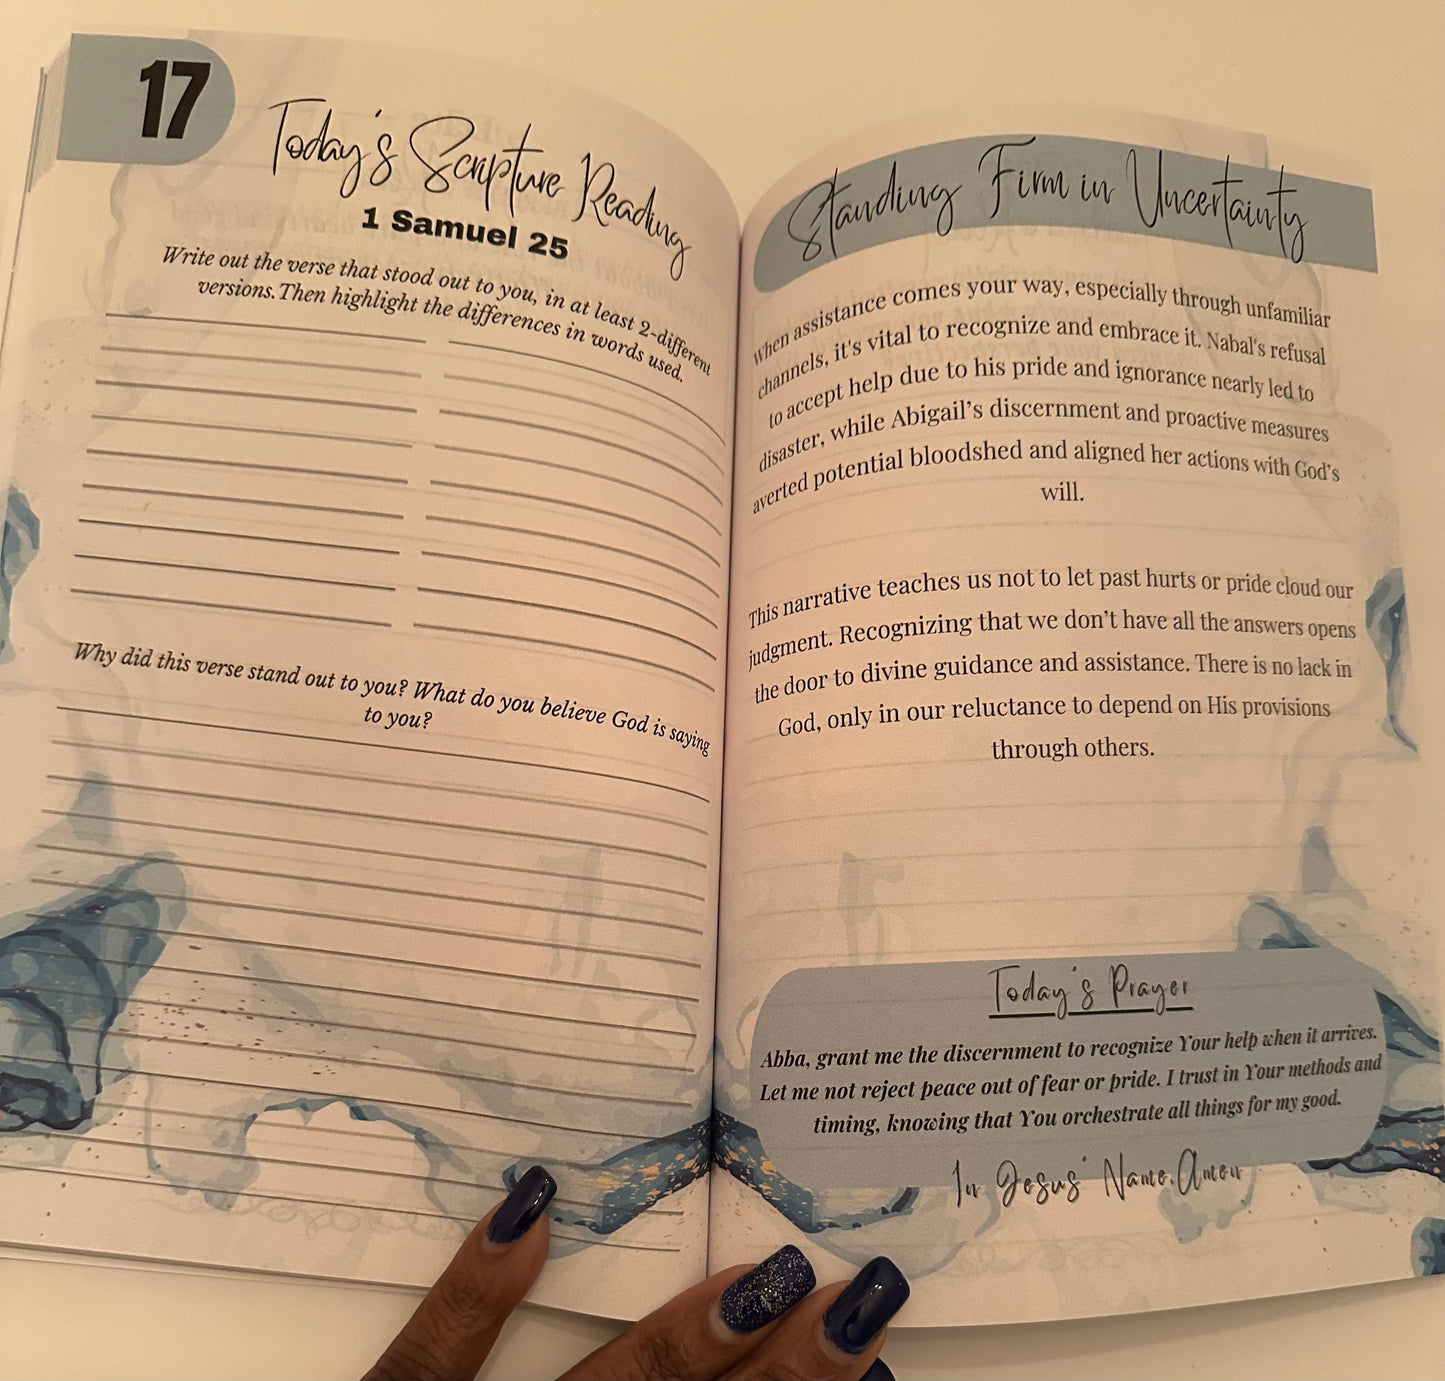 17
Today's Scripture Reading
1 Samuel 25
Write out the verse that stood out to you, in at least 2-different
versions.Then highlight the differences in words used.
Why did this verse stand out to you? What do you believe God is saying
to you?
Standing Firm in Uncertainty
When assistance comes your way, especially through unfamiliar
channels, it's vital to recognize and embrace it. Nabal's refusal
to accept help due to his pride and ignorance nearly led to
disaster, while Abigail's discernment and proactive measures
averted potential bloodshed and aligned her actions with God's
will.
This narrative teaches us not to let past hurts or pride cloud our
judgment. Recognizing that we don't have all the answers opens
the door to divine guidance and assistance. There is no lack in
God, only in our reluctance to depend on His provisions
through others.
Today's Prayer
Abba, grant me the discernment to recognize Your help when it arrives.
Let me not reject peace out of fear or pride. I trust in Your methods and
timing, knowing that You orchestrate all things for my good.
In Jesus' Name.Amen